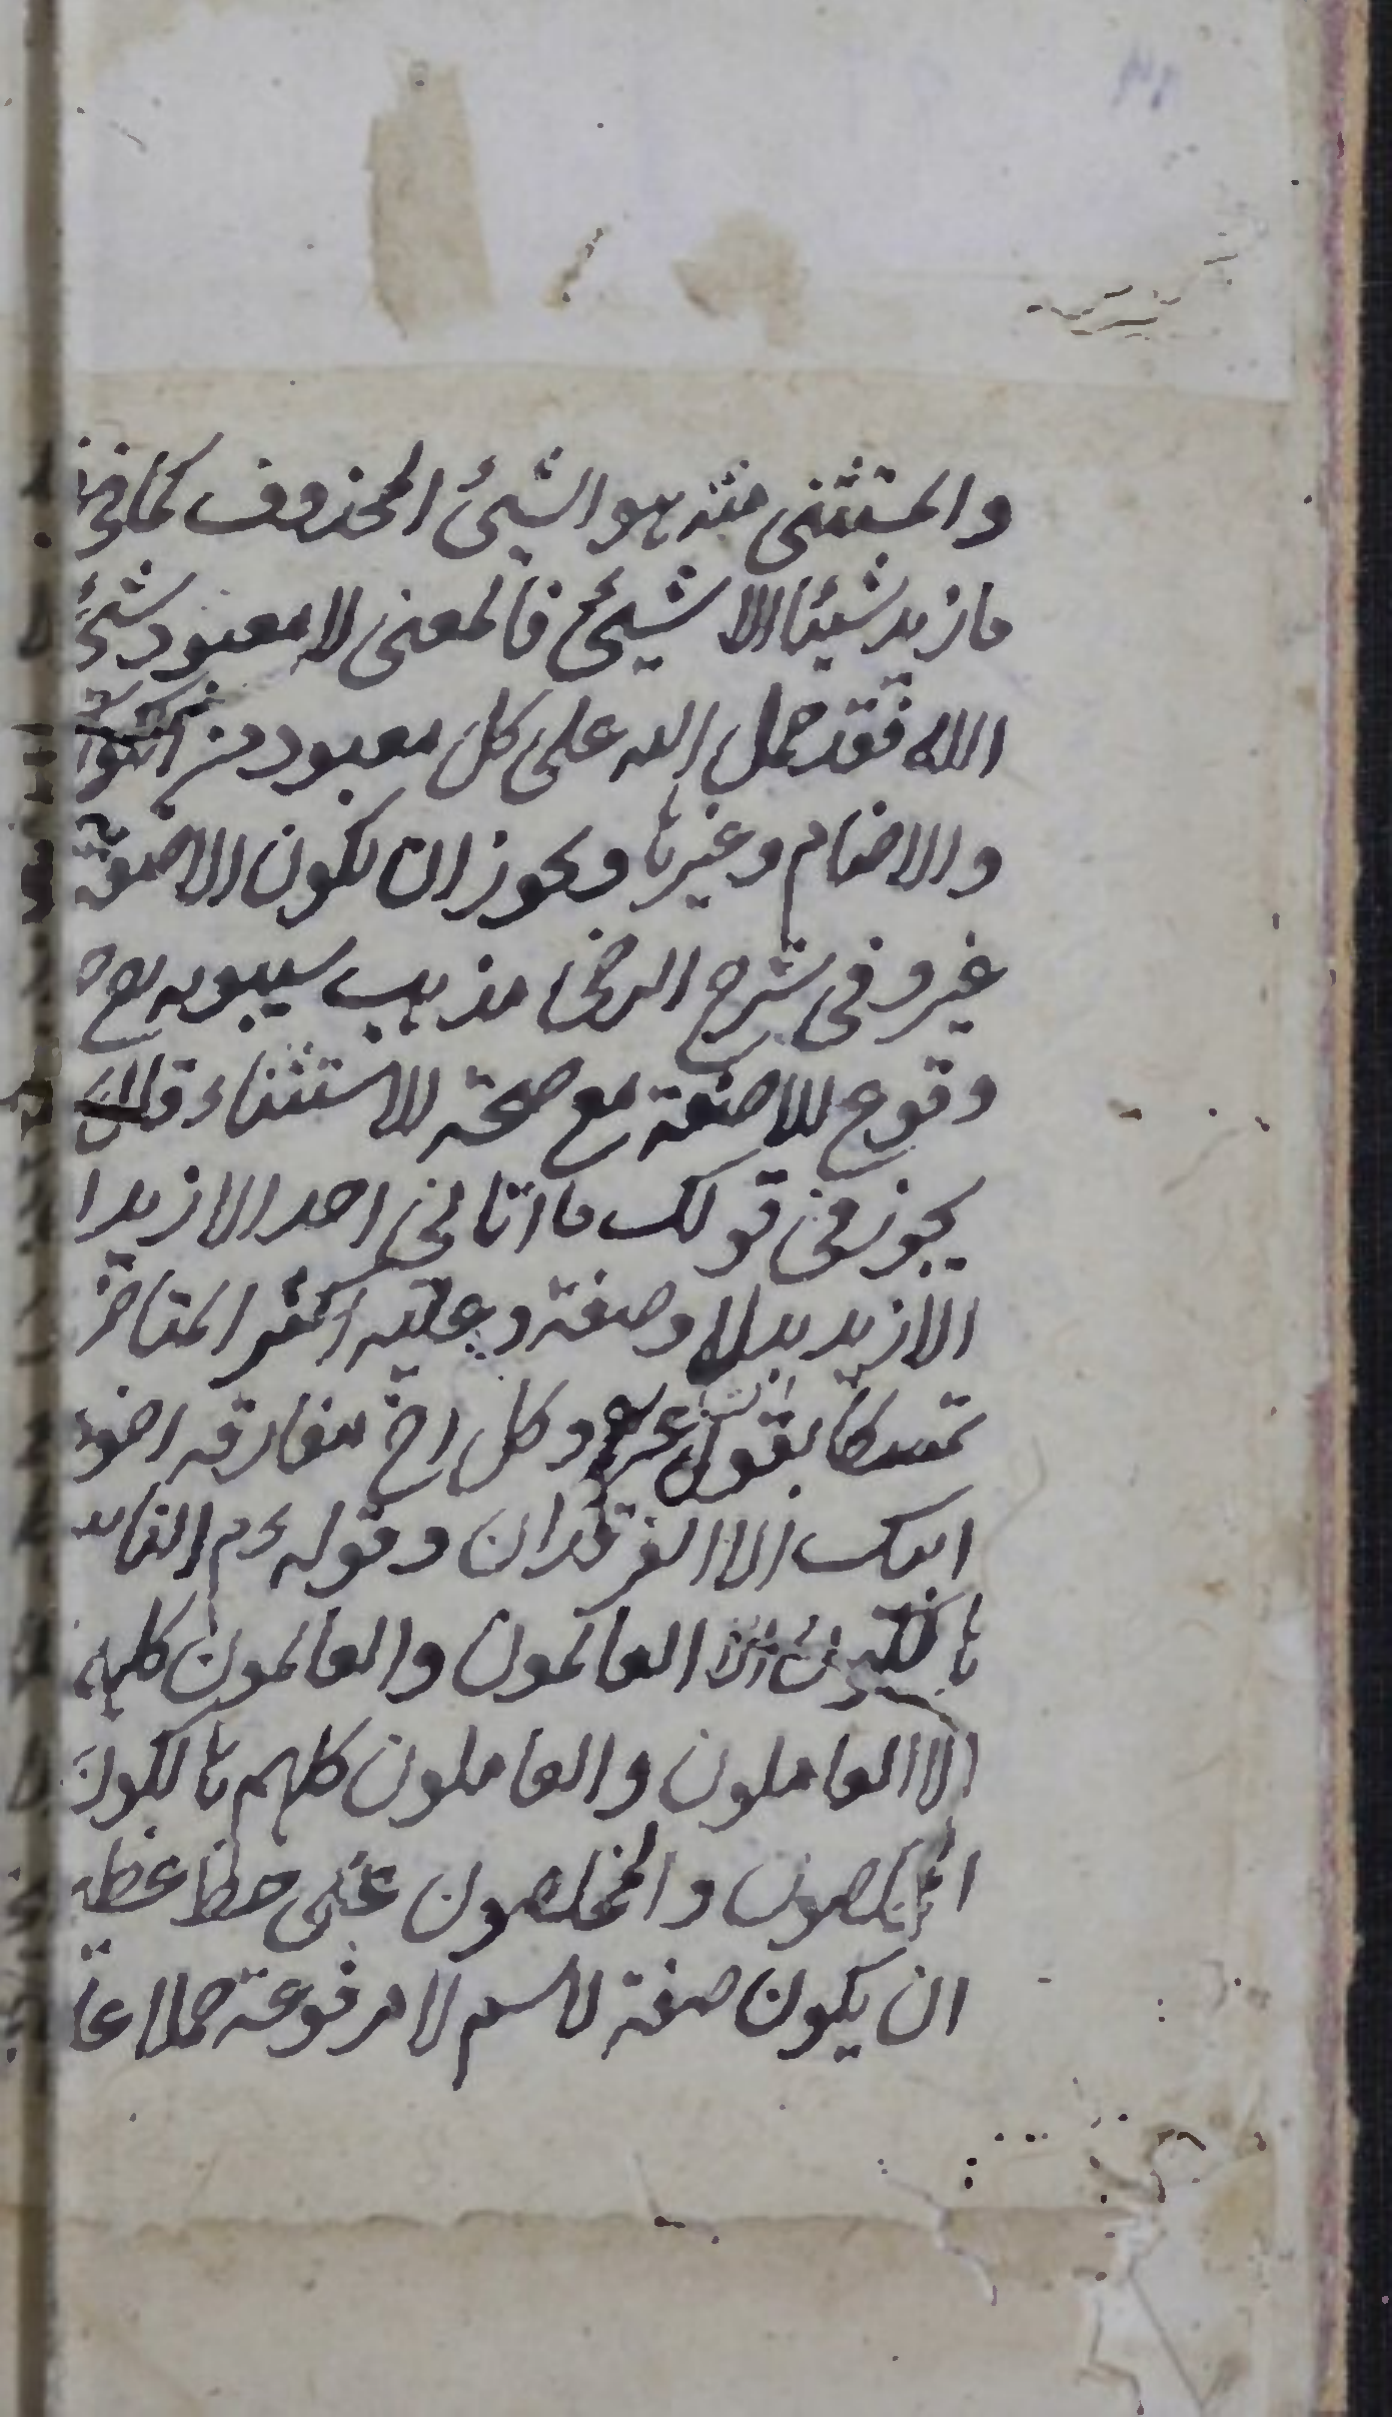 والمستثنى منه هو الشيئ المحذوف كما في
ما زيد شيئا الا شيئ فالمعنى لا معبود شئ
الا الله فقد حمل الله على كل معبود من
والاصنام وغيرها ويجوز ان يكون الا صفة
غير وفي شرح الرضى مذهب سيبويه
وقوع الا صفة مع صحة الاستثناء قال
يجوز في قولك ما اتانى احد الا زيد ا
الا زيد بدلا وصفة وعليه اكثر المتاخر
تمسكا بقوله وكل اخ مفارقه اخوه
ابيك الا الفرقدان وقوله ءم الناس
الا العالمون والعالمون كلهم
الا العاملون والعاملون كلهم هالكون
المخلصون والمخلصون على خطر عظيم
ان يكون صفة لاسم لا مرفوعة حملا على